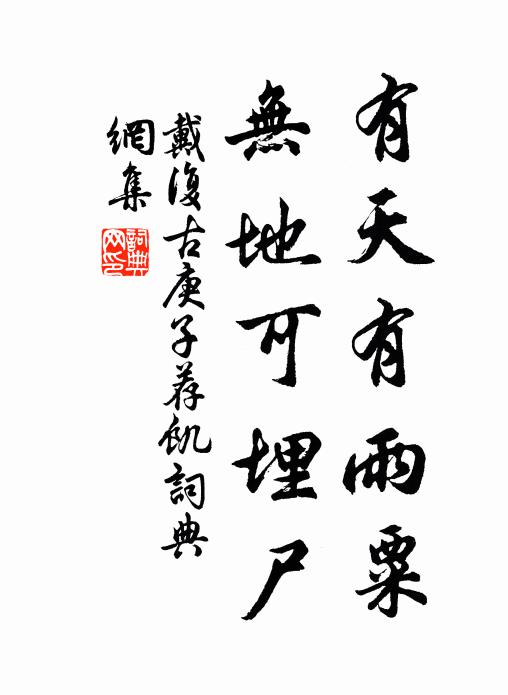 有天有雨粟
無地可埋尸
戴復古庚子荐飢詞典
網集
詞典网印